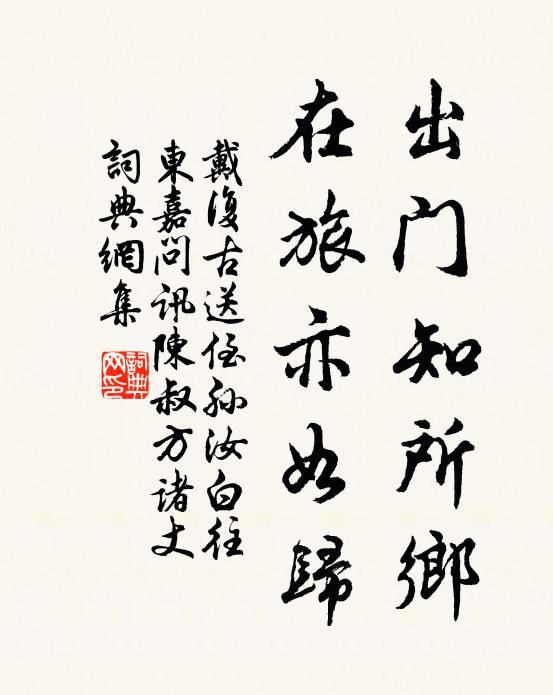 出门知所鄉
在旅亦如歸
戴復古送侄孙汝白往
東嘉问訊陳叔方諸丈
詞典網集
詞典网印